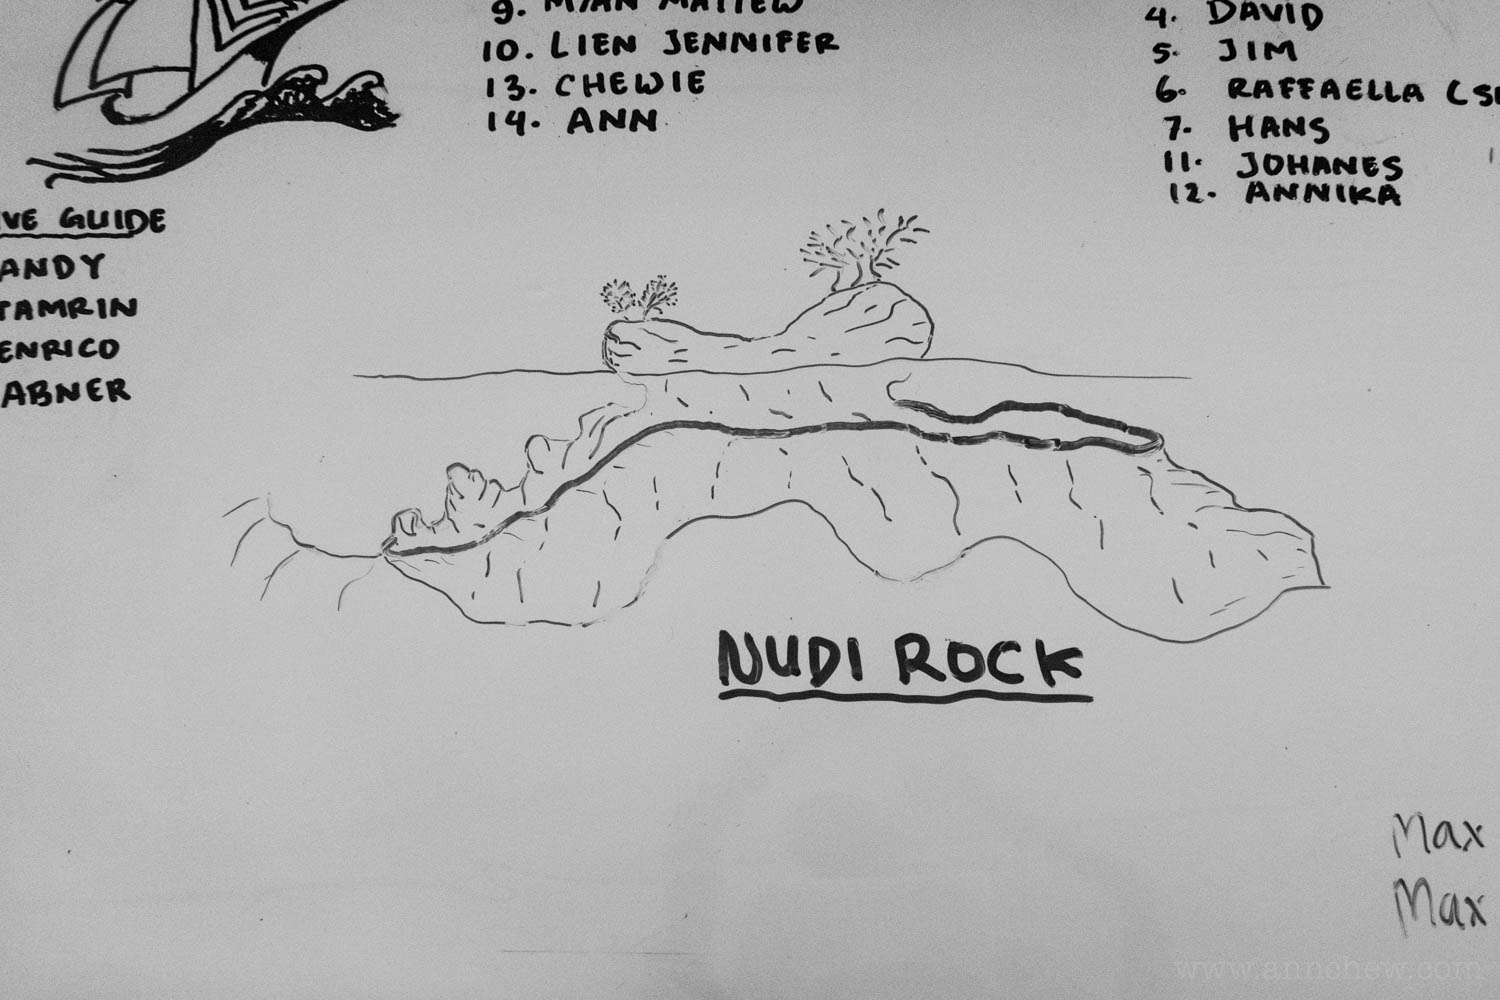 10. LIEN JENNIFER
13. CHEWIE
14. ANN
4. DAVID
5. JIM
6. RAFFAELLA
7. HANS
11. JOHANES
12. ANNIKA
GUIDE
ANDY
TAMRIN
ENRICO
ABNER
NUDI ROCK
Max
Max
www.annchew.com